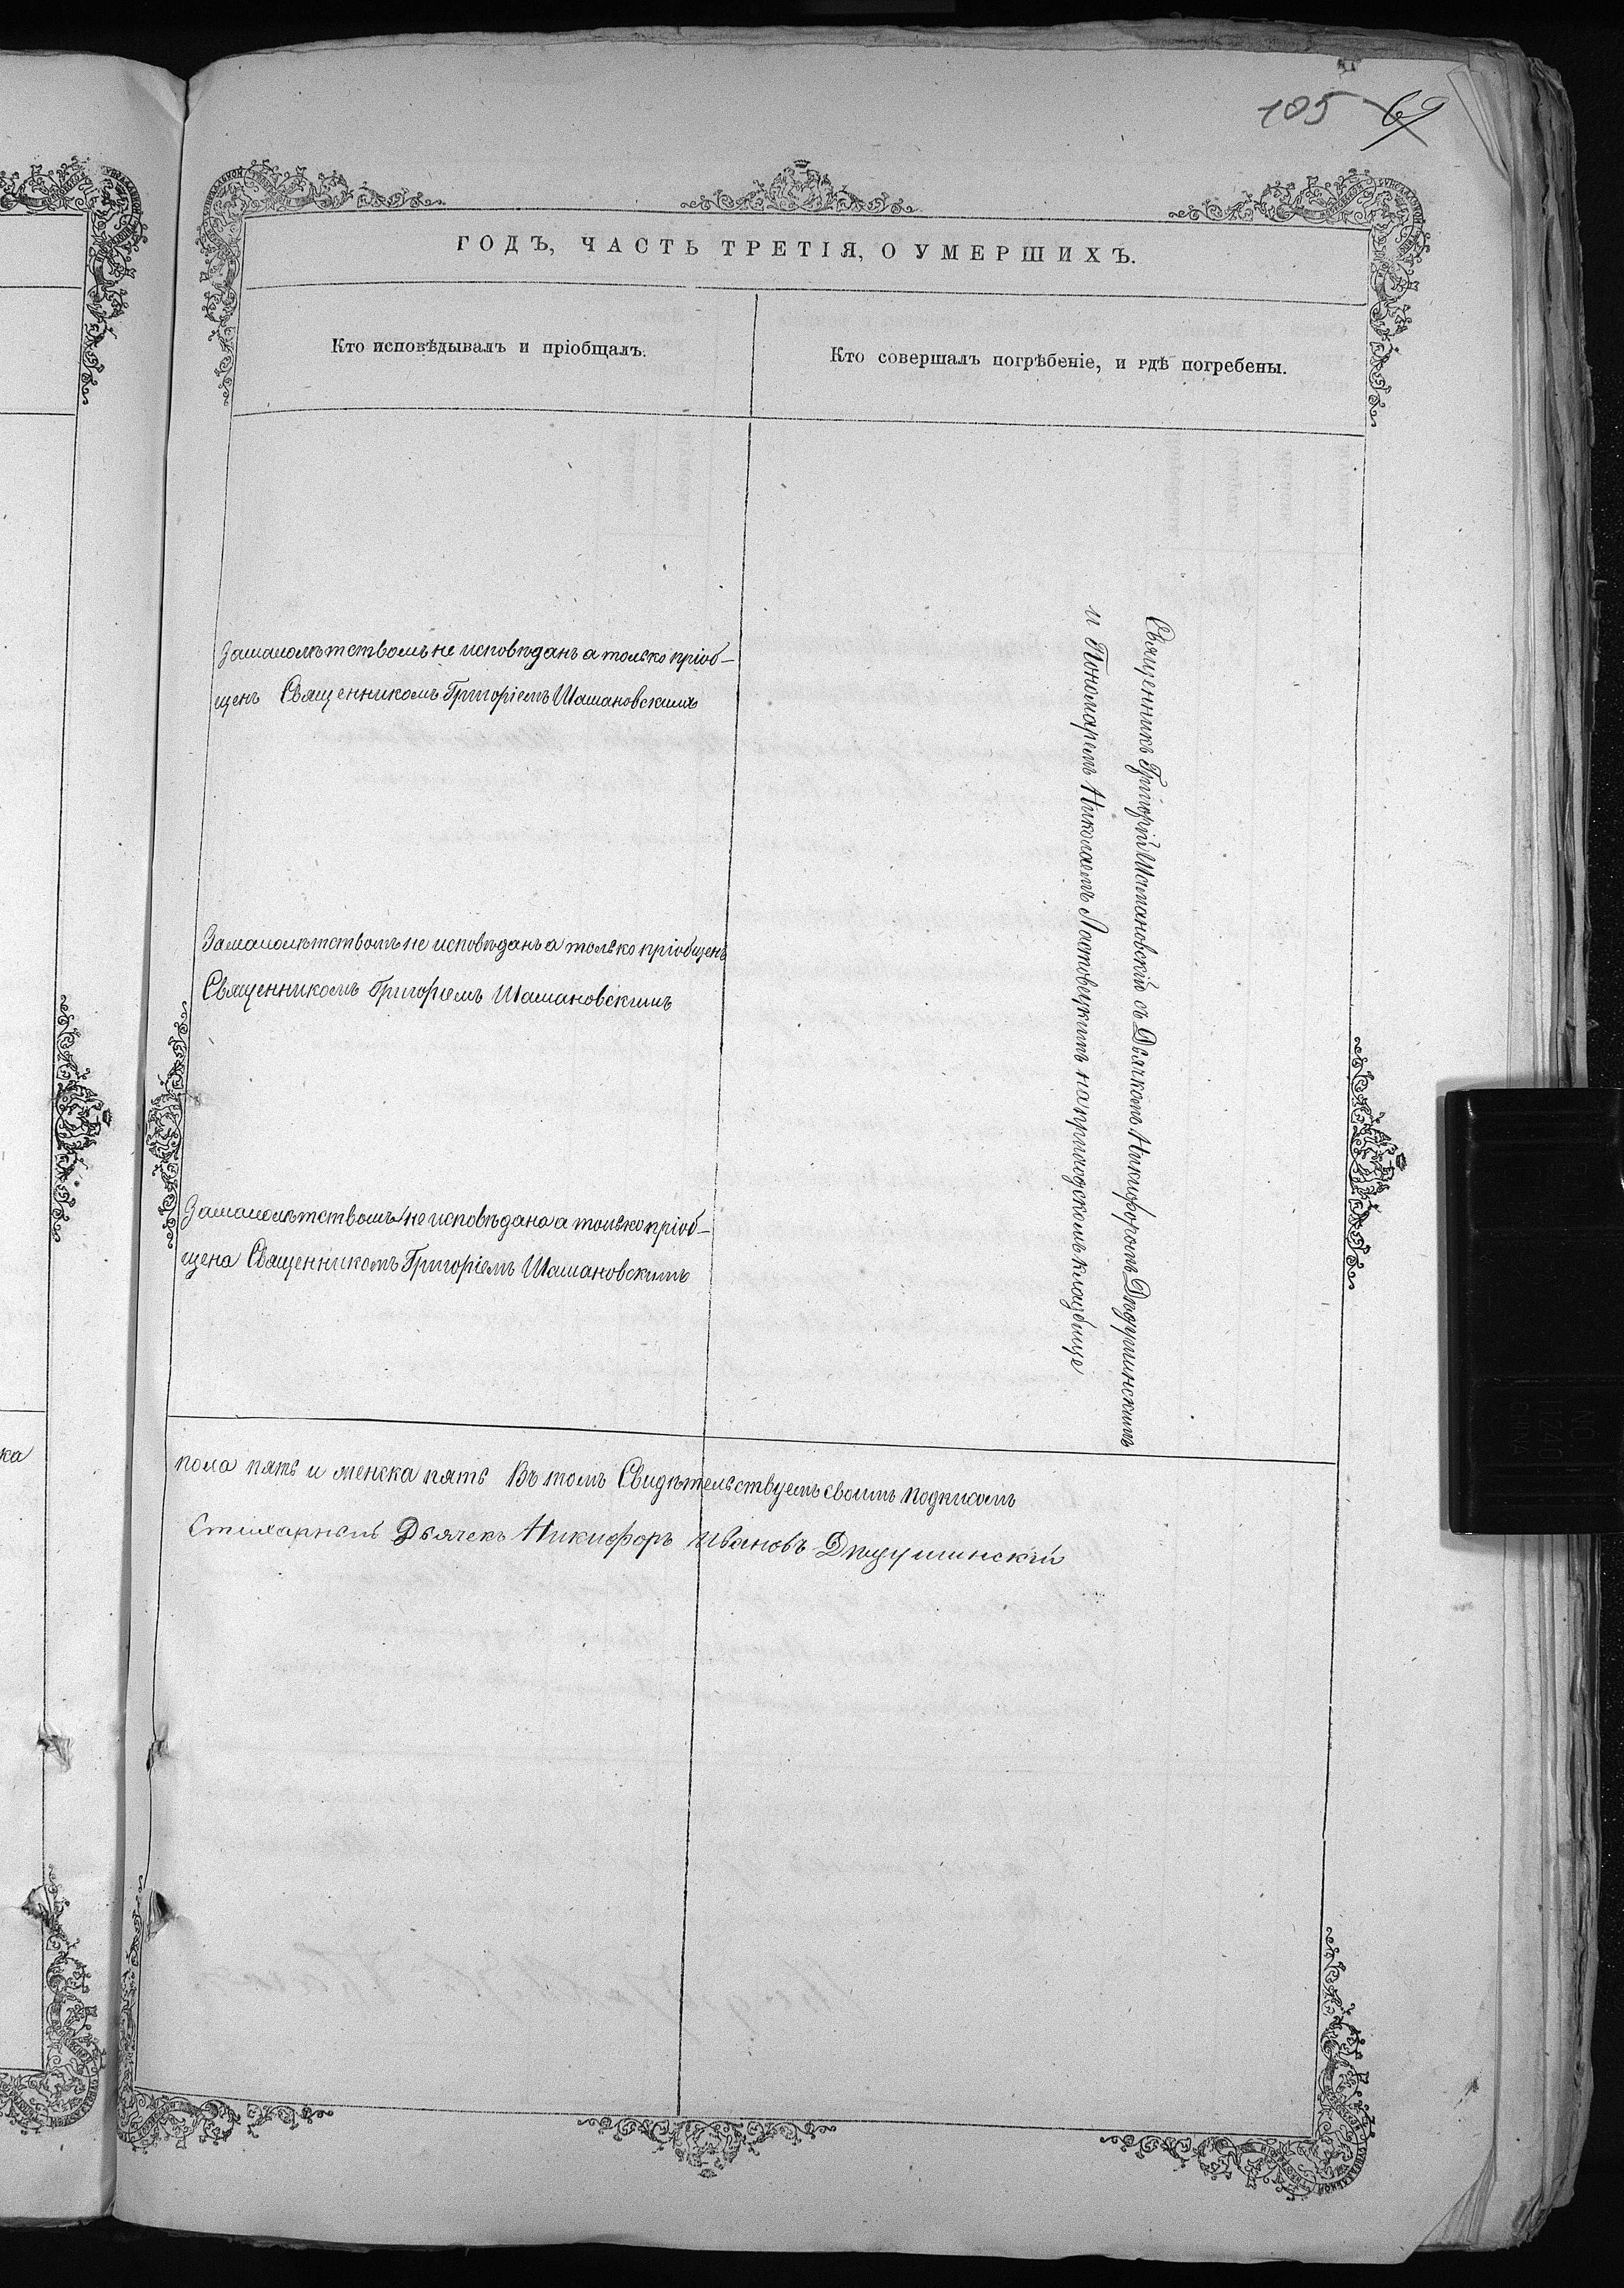 105 69
ГОДЪ, ЧАСТЬ ТРЕТІЯ, О УМЕРШИХЪ.
Кто исповѣдывалъ и пріобщалъ.
Кто совершалъ погрѣбеніе, и гдѣ погребены.
За малолѣтствомъ не исповѣданъ а только пріоб-
щенъ Священникомъ Григоріемъ Шамановскимъ
За малолѣтствомъ не исповѣданъ а только пріобщенъ
Священникомъ Григоріемъ Шамановскимъ
За малолѣтствомъ не исповѣдана а только пріоб-
щена Священникомъ Григоріемъ Шамановскимъ
Священникъ Григорій Шамановскій съ Дьячкомъ Никифоромъ Дѣдушинскимъ
и Пономаремъ Николаемъ Ластовецкимъ на приходскомъ кладбище
ка
пола пять и женска пять Въ томъ Свидѣтельствуемъ своимъ подписомъ
Стихарный Дьячекъ Никифоръ Ивановъ Дѣдушинскій